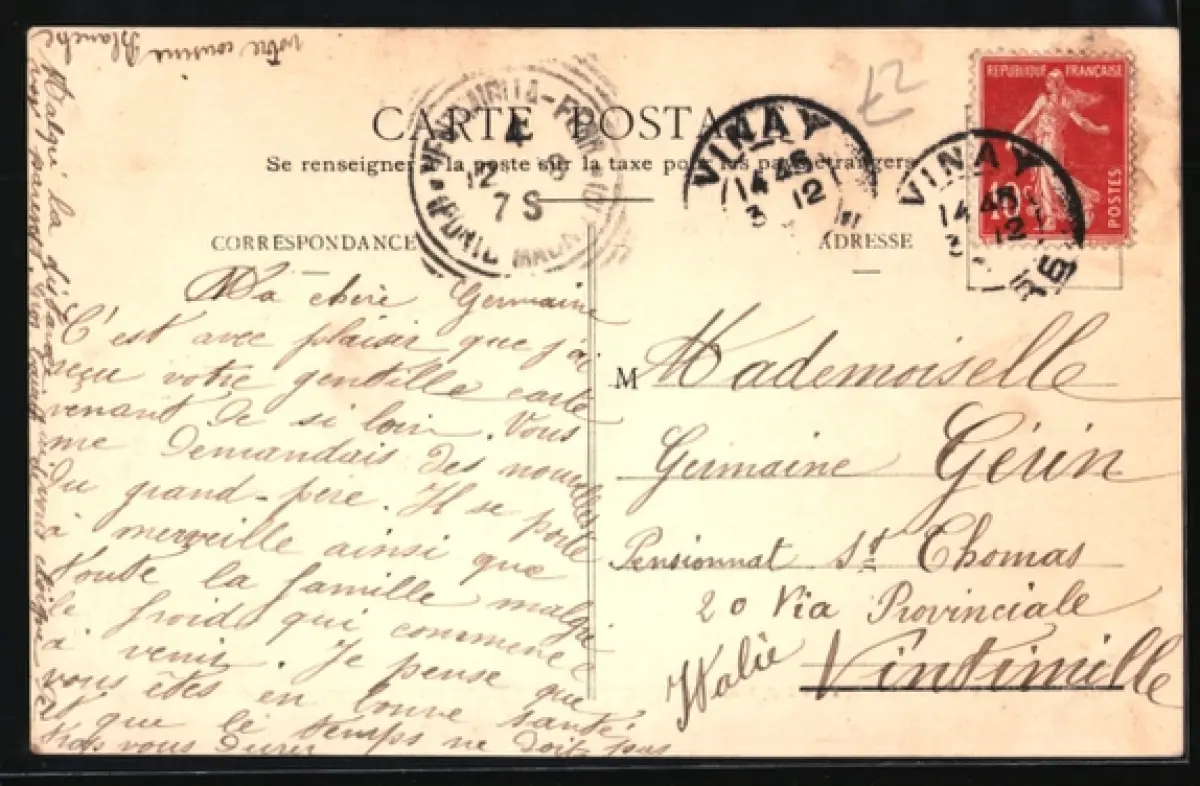 CARTE POSTA
Se renseigner à la poste sur la taxe pour les pays étrangers
CORRESPONDANCE
ADRESSE
REPUBLIQUE FRANÇAISE
10c
POSTES
VINAY
14 45
3 12
VINAY
14 45
3 12
4
12
7 S
Ma chère Germaine
C'est avec plaisir que j'ai
reçu votre gentille carte
venant de si loin. Vous
me demandais des nouvelles
du grand-père. Il se porte
à merveille ainsi que
toute la famille malgré
le froid qui commence
à venir. Je pense que
vous êtes en bonne santé,
et que le temps ne doit pas
trop vous durer
Malgré la distance
votre cousine
Blanche
M Mademoiselle
Germaine Gérin
Pensionnat St Thomas
20 Via Provinciale
Vintimille
Italie